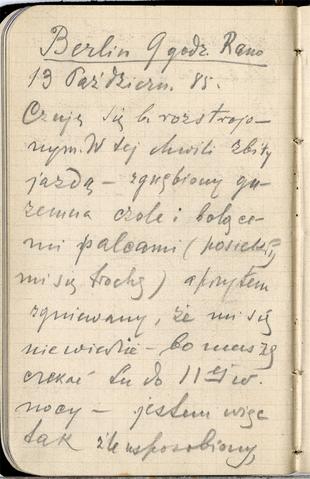 Berlin 9 godz. Rano
13 Październ. 85.
Czuję się b. rozstrojo-
nym. W tej chwili zbity
jazdą – zgnębiony gu-
zem na czole i bolące-
mi palcami (
mi się trochę) a przytem
zgniewany, że mi się
nie wiedzie – bo muszę
czekać tu do 11 ej w.
nocy – jestem więc
tak źle usposobiony,